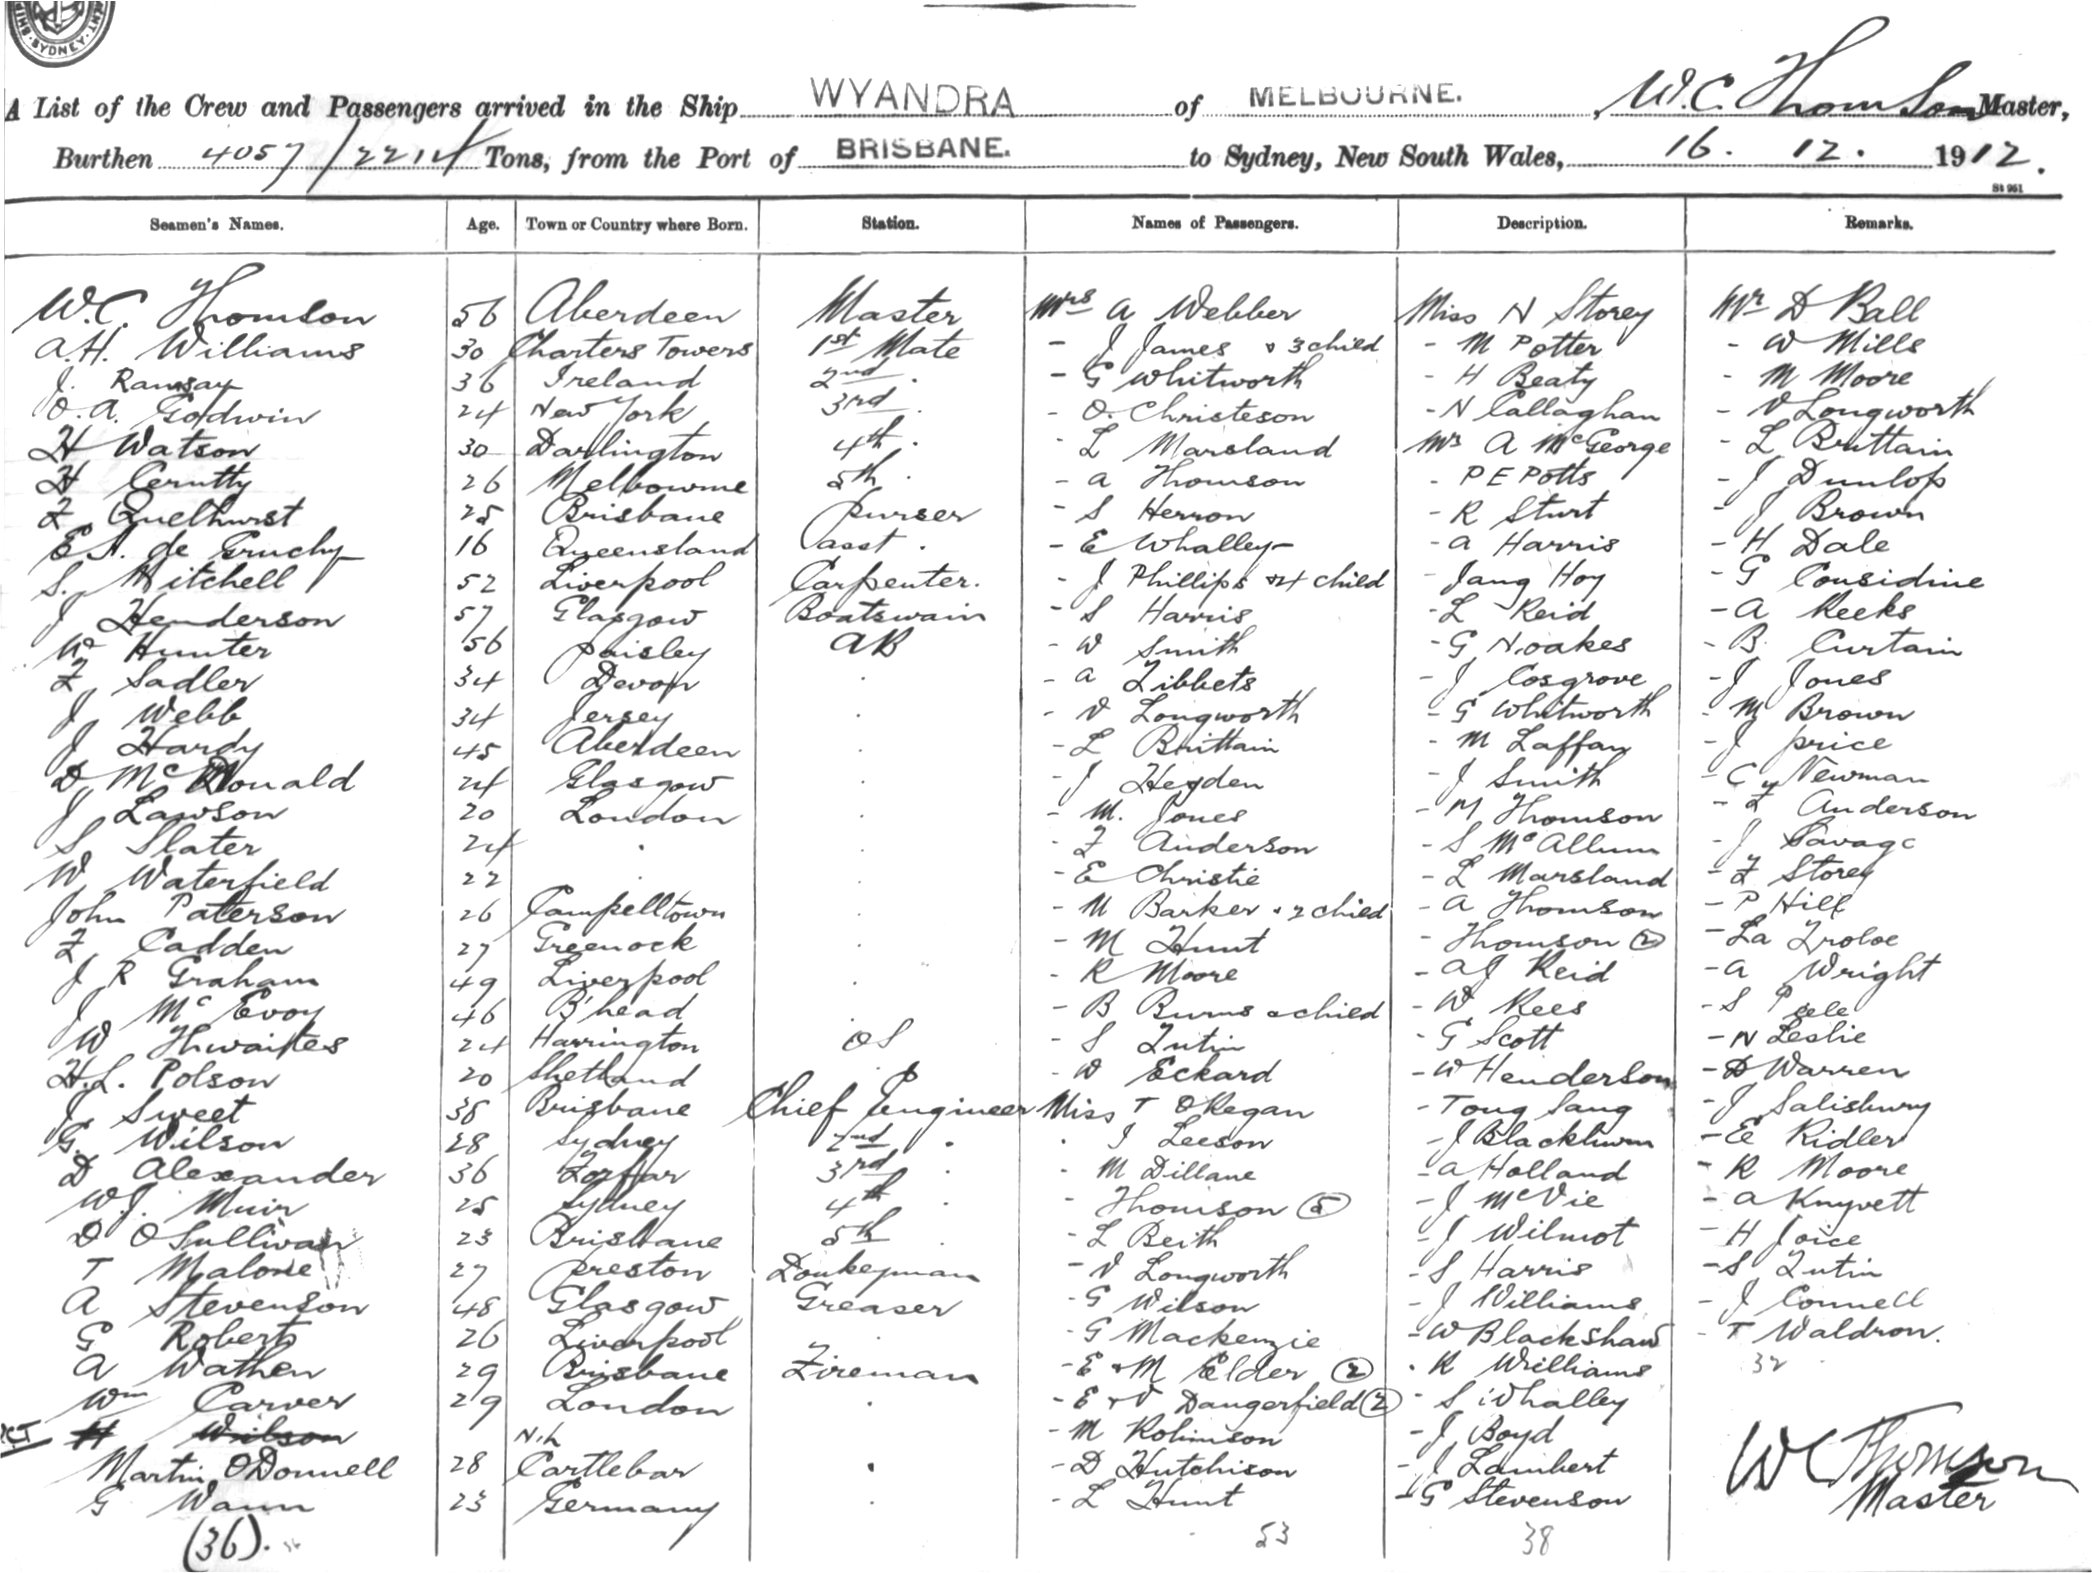 SYDNEY
A List of the Crew and Passengers arrived in the Ship WYANDRA of MELBOURNE. , W.C. Thomson Master,
Burthen 4057/2214 Tons, from the Port of BRISBANE. to Sydney, New South Wales, 16. 12. 1912.
St 951
Seamen's Names. Age. Town or Country where Born. Station. Names of Passengers. Description. Remarks.
W.C. Thomson 56 Aberdeen Master Mrs A Webber Miss N Storey Mr D Ball
A.H. Williams 30 Charters Towers 1st Mate - J James & 3 child - M Potter - W Mills
J. Ramsay 36 Ireland 2nd . - G Whitworth - H Beaty - M Moore
O.A. Godwin 24 New York 3rd . - O. Christeson - N Callaghan - V Longworth
H Watson 30 Darlington 4th . - L Marsland Mr A McGeorge - L Brittain
H Cerutty 26 Melbourne 5th . - A Thomson - P E Potts - J Dunlop
F Quelhurst 25 Brisbane Purser - S Herron - R Sturt - J Brown
E A. de Gruchy 16 Queensland asst . - E Whalley - A Harris - H Dale
S. Mitchell 52 Liverpool Carpenter. - J Phillips & 4 child - Jang Hoy - G Considine
J Henderson 57 Glasgow Boatswain - S Harris - L Reid - A Reeks
W Hunter 56 Paisley AB - W Smith - G Noakes - B. Curtain
F Sadler 34 Devon . - A Tibbets - J Cosgrove - J Jones
J Webb 34 Jersey . - V Longworth - G Whitworth - M Brown
J Hardy 45 Aberdeen . - L Brittain - M Laffan - J Price
D McDonald 24 Glasgow . - J Heyden - J Smith - C Newman
J Lawson 20 London . - M. Jones - M Thomson - F Anderson
S Slater 24 . . - F Anderson - S McAllum - J Savage
W Waterfield 22 . . - E Christie - L Marsland - F Storey
John Paterson 26 Campelltown . - M Barker & 2 child - A Thomson - P Hill
F Cadden 27 Greenock . - M Hunt - Thomson (2) - La
J R Graham 49 Liverpool . - R Moore - A J Reid - A Wright
J McEvoy 46 B'head . - B Burns & child - W Rees - S Pole
W Thwaites 24 Harrington OS - S Tutin - G Scott - N Leslie
H.L. Polson 20 Shetland - W Eckard - W Henderson - D Warren
J Sweet 38 Brisbane Chief Engineer Miss T O'Regan - Tong Sang - J Salisbury
G. Wilson 28 Sydney 2nd . . J Leeson - J Blackburn - E Ridler
D Alexander 36 Forfar 3rd . - M Dillane - A Holland - R Moore
W.J. Muir 25 Sydney 4th . - Thomson (5) - J McVie - A Knyvett
D O'Sullivan 23 Brisbane 5th . - L Beith - J Wilmot - H Joice
T Malone 27 Preston Donkeyman - V Longworth - S Harris - S Tutin
A Stevenson 48 Glasgow Greaser - G Wilson - J Williams - J Connell
G Roberts 26 Liverpool . - G Mackenzie - W Blackshaw - T Waldron.
A Wathen 29 Brisbane Fireman - E & M Elder (2) . R Williams 32
Wm Carver 29 London . - E & V Dangerfield (2) - S Whalley
H Wilson - M Robinson - J Boyd
Martin O'Donnell 28 Cartlebar . - D Hutchison - J Lambert WC Thomson
G Wann 23 Germany . - L Hunt - G Stevenson Master
(36). 53 38